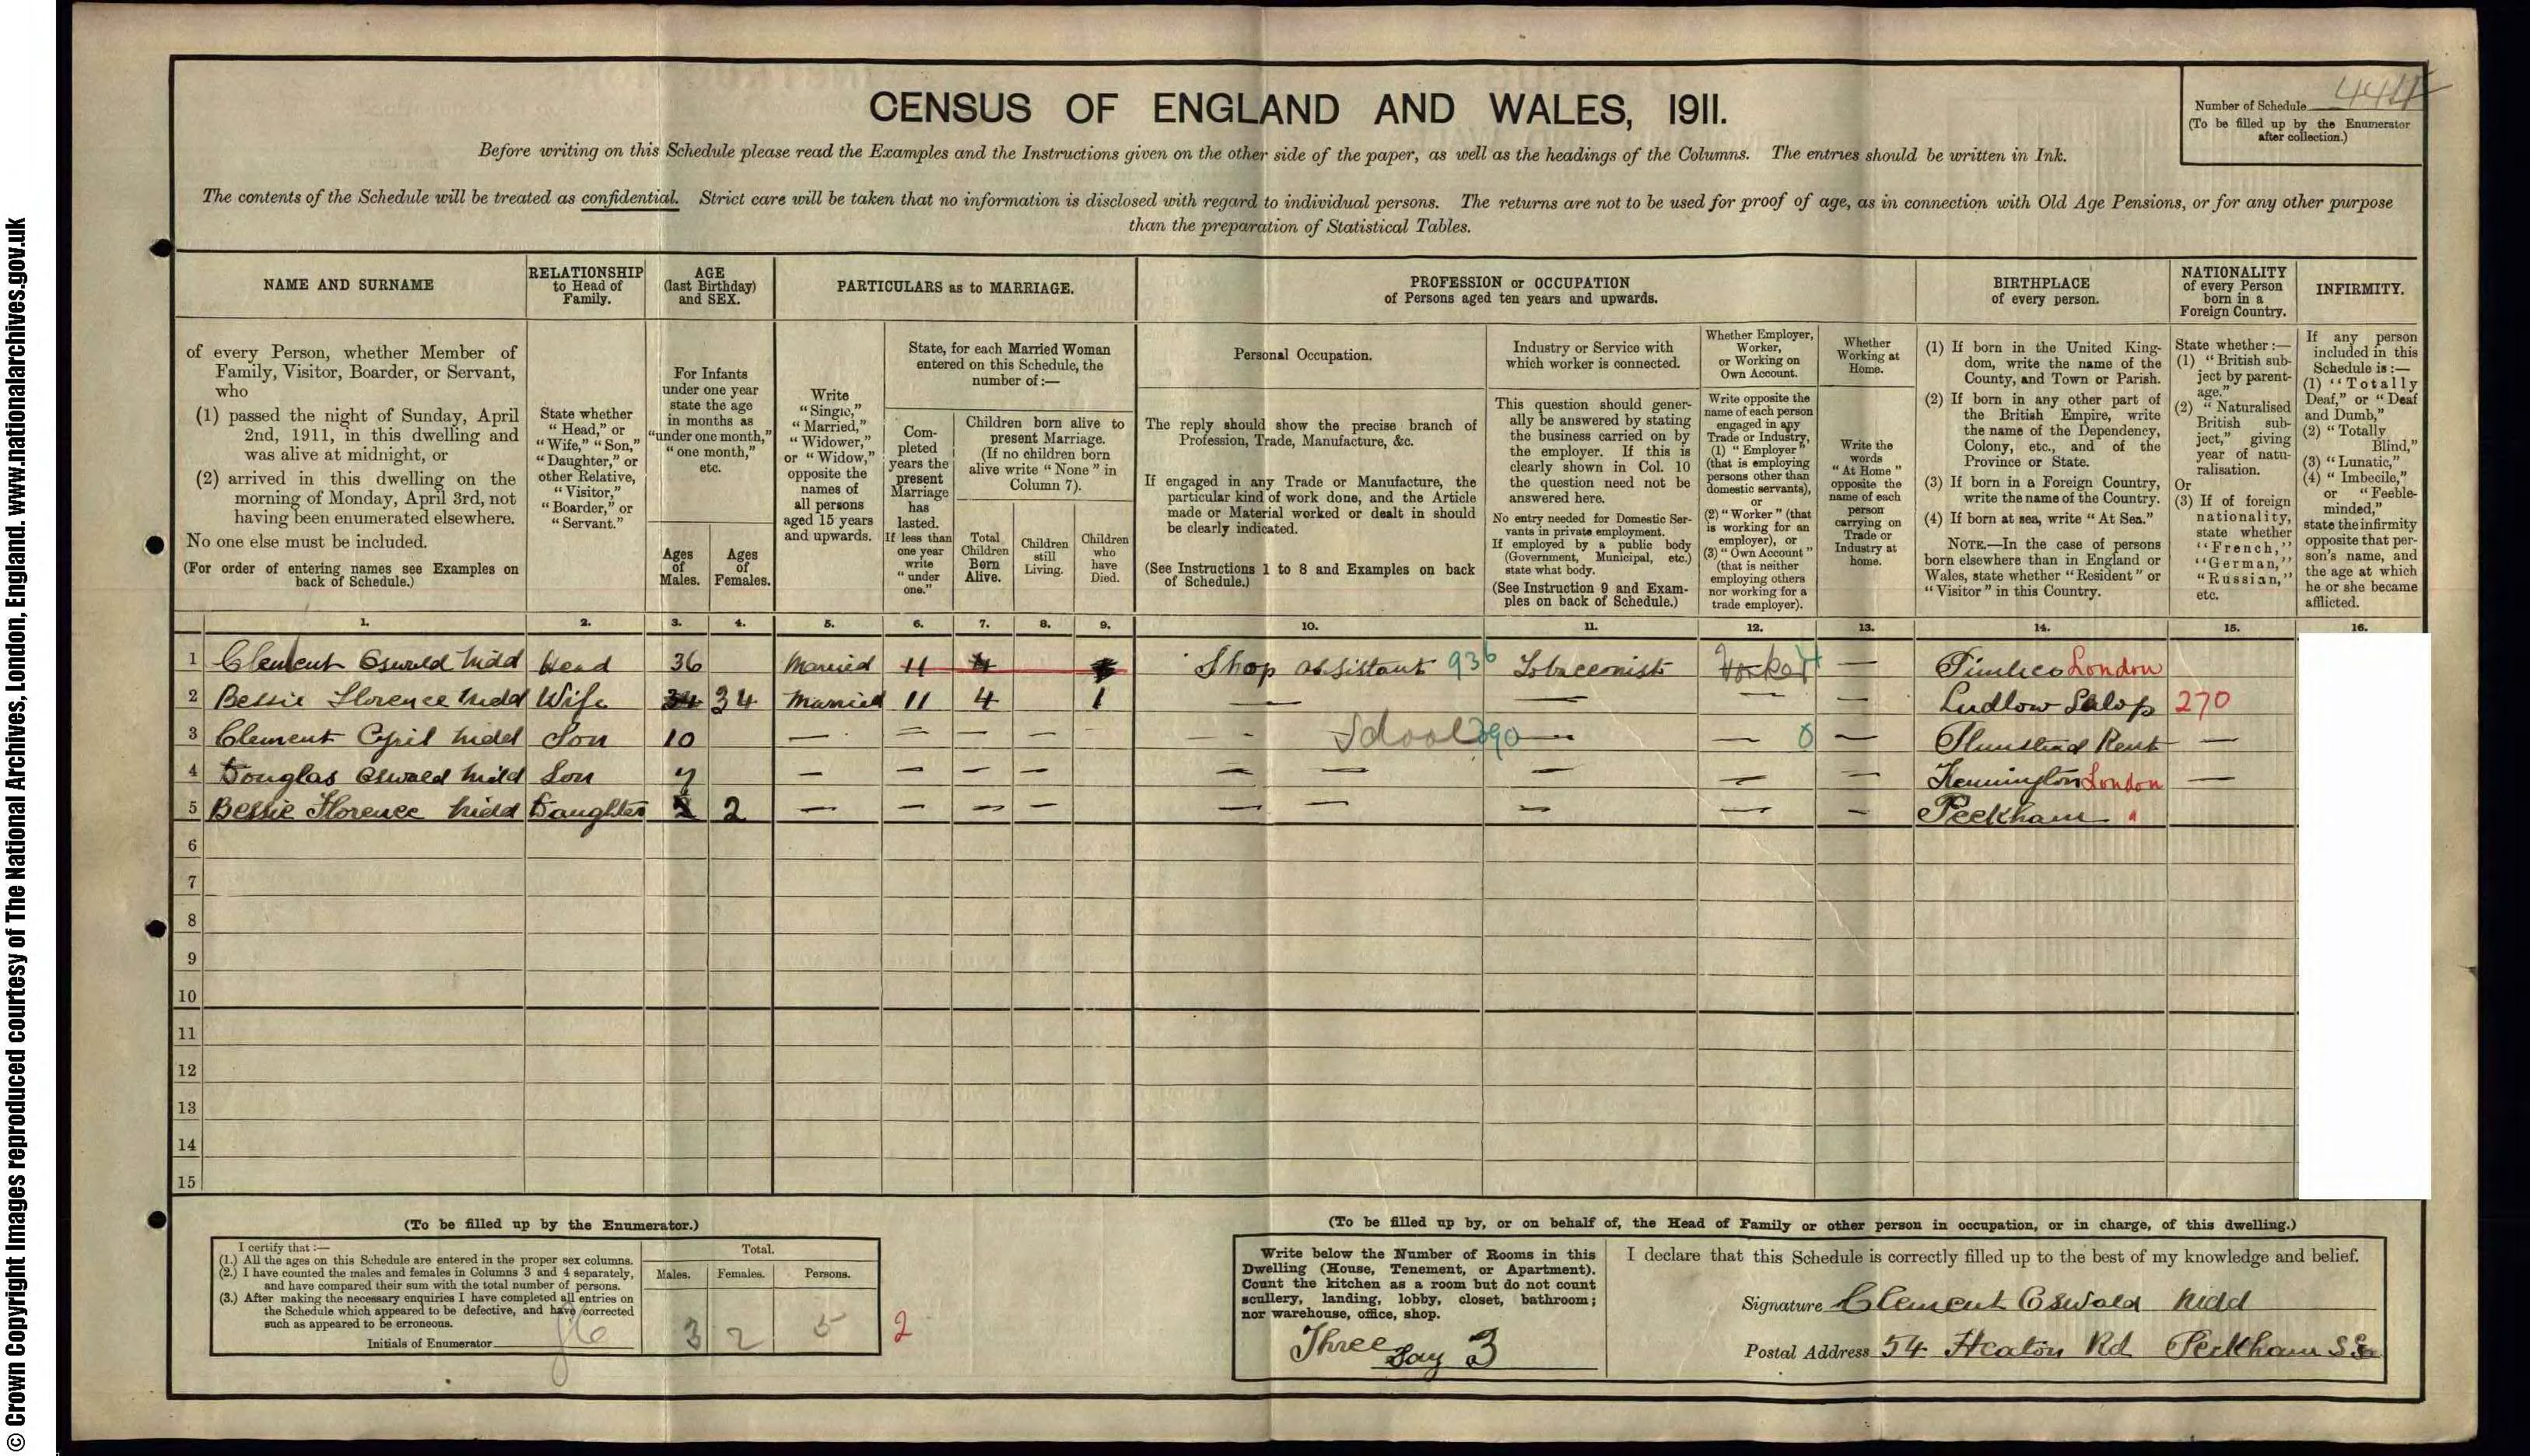 © Crown Copyright Images reproduced courtesy of The National Archives, London, England. www.nationalarchives.gov.uk
CENSUS OF ENGLAND AND WALES, 1911.
Number of Schedule 444
(To be filled up by the Enumerator
after collection.)
Before writing on this Schedule please read the Examples and the Instructions given on the other side of the paper, as well as the headings of the Columns. The entries should be written in Ink.
The contents of the Schedule will be treated as confidential. Strict care will be taken that no information is disclosed with regard to individual persons. The returns are not to be used for proof of age, as in connection with Old Age Pensions, or for any other purpose
than the preparation of Statistical Tables.
NAME AND SURNAME
of every Person, whether Member of
Family, Visitor, Boarder, or Servant,
who
(1) passed the night of Sunday, April
2nd, 1911, in this dwelling and
was alive at midnight, or
(2) arrived in this dwelling on the
morning of Monday, April 3rd, not
having been enumerated elsewhere.
No one else must be included.
(For order of entering names see Examples on
back of Schedule.)
RELATIONSHIP
to Head of
Family.
State whether
"Head," or
"Wife," "Son,"
"Daughter," or
other Relative,
"Visitor,"
"Boarder," or
"Servant."
AGE
(last Birthday)
and SEX.
For Infants
under one year
state the age
in months as
"under one month,"
"one month,"
etc.
Ages
of
Males.
Ages
of
Females.
PARTICULARS as to MARRIAGE.
Write
"Single,"
"Married,"
"Widower,"
or "Widow,"
opposite the
names of
all persons
aged 15 years
and upwards.
State, for each Married Woman
entered on this Schedule, the
number of:—
Com-
pleted
years the
present
Marriage
has
lasted.
If less than
one year
write
"under
one."
Children born alive to
present Marriage.
(If no children born
alive write "None" in
Column 7).
Total
Children
Born
Alive.
Children
still
Living.
Children
who
have
Died.
PROFESSION or OCCUPATION
of Persons aged ten years and upwards.
Personal Occupation.
The reply should show the precise branch of
Profession, Trade, Manufacture, &c.
If engaged in any Trade or Manufacture, the
particular kind of work done, and the Article
made or Material worked or dealt in should
be clearly indicated.
(See Instructions 1 to 8 and Examples on back
of Schedule.)
Industry or Service with
which worker is connected.
This question should gener-
ally be answered by stating
the business carried on by
the employer. If this is
clearly shown in Col. 10
the question need not be
answered here.
No entry needed for Domestic Ser-
vants in private employment.
If employed by a public body
(Government, Municipal, etc.)
state what body.
(See Instruction 9 and Exam-
ples on back of Schedule.)
Whether Employer,
Worker,
or Working on
Own Account.
Write opposite the
name of each person
engaged in any
Trade or Industry,
(1) "Employer"
(that is employing
persons other than
domestic servants),
or
(2) "Worker" (that
is working for an
employer), or
(3) "Own Account"
(that is neither
employing others
nor working for a
trade employer).
Whether
Working at
Home.
Write the
words
"At Home"
opposite the
name of each
person
carrying on
Trade or
Industry at
home.
BIRTHPLACE
of every person.
(1) If born in the United King-
dom, write the name of the
County, and Town or Parish.
(2) If born in any other part of
the British Empire, write
the name of the Dependency,
Colony, etc., and of the
Province or State.
(3) If born in a Foreign Country,
write the name of the Country.
(4) If born at sea, write "At Sea."
NOTE.—In the case of persons
born elsewhere than in England or
Wales, state whether "Resident" or
"Visitor" in this Country.
NATIONALITY
of every Person
born in a
Foreign Country.
State whether:—
(1) "British sub-
ject by parent-
age."
(2) "Naturalised
British sub-
ject," giving
year of natu-
ralisation.
Or
(3) If of foreign
nationality,
state whether
"French,"
"German,"
"Russian,"
etc.
INFIRMITY.
If any person
included in this
Schedule is:—
(1) "Totally
Deaf," or "Deaf
and Dumb,"
(2) "Totally
Blind,"
(3) "Lunatic,"
(4) "Imbecile,"
or "Feeble-
minded,"
state the infirmity
opposite that per-
son's name, and
the age at which
he or she became
afflicted.
1. 2. 3. 4. 5. 6. 7. 8. 9. 10. 11. 12. 13. 14. 15. 16.
1 Clement Oswald Nidd Head 36 Married 11 4 Shop assistant 936 Tobacconist Worker — Pimlico London
2 Bessie Florence Nidd Wife 34 34 Married 11 4 1 — — — — Ludlow Salop 270
3 Clement Cyril Nidd Son 10 — — — — - School 390 — — 0 — Plumstead Kent —
4 Douglas Oswald Nidd Son 7 — — — — — — — — — Kennington London —
5 Bessie Florence Nidd Daughter 2 2 — — — — — — — — — Peckham "
6
7
8
9
10
11
12
13
14
15
(To be filled up by the Enumerator.)
I certify that:—
(1.) All the ages on this Schedule are entered in the proper sex columns.
(2.) I have counted the males and females in Columns 3 and 4 separately,
and have compared their sum with the total number of persons.
(3.) After making the necessary enquiries I have completed all entries on
the Schedule which appeared to be defective, and have corrected
such as appeared to be erroneous.
Initials of Enumerator
Total.
Males. Females. Persons.
3 2 5 2
(To be filled up by, or on behalf of, the Head of Family or other person in occupation, or in charge, of this dwelling.)
Write below the Number of Rooms in this
Dwelling (House, Tenement, or Apartment).
Count the kitchen as a room but do not count
scullery, landing, lobby, closet, bathroom;
nor warehouse, office, shop.
Three Say 3
I declare that this Schedule is correctly filled up to the best of my knowledge and belief.
Signature Clement Oswald Nidd
Postal Address 54 Heaton Rd Peckham S E